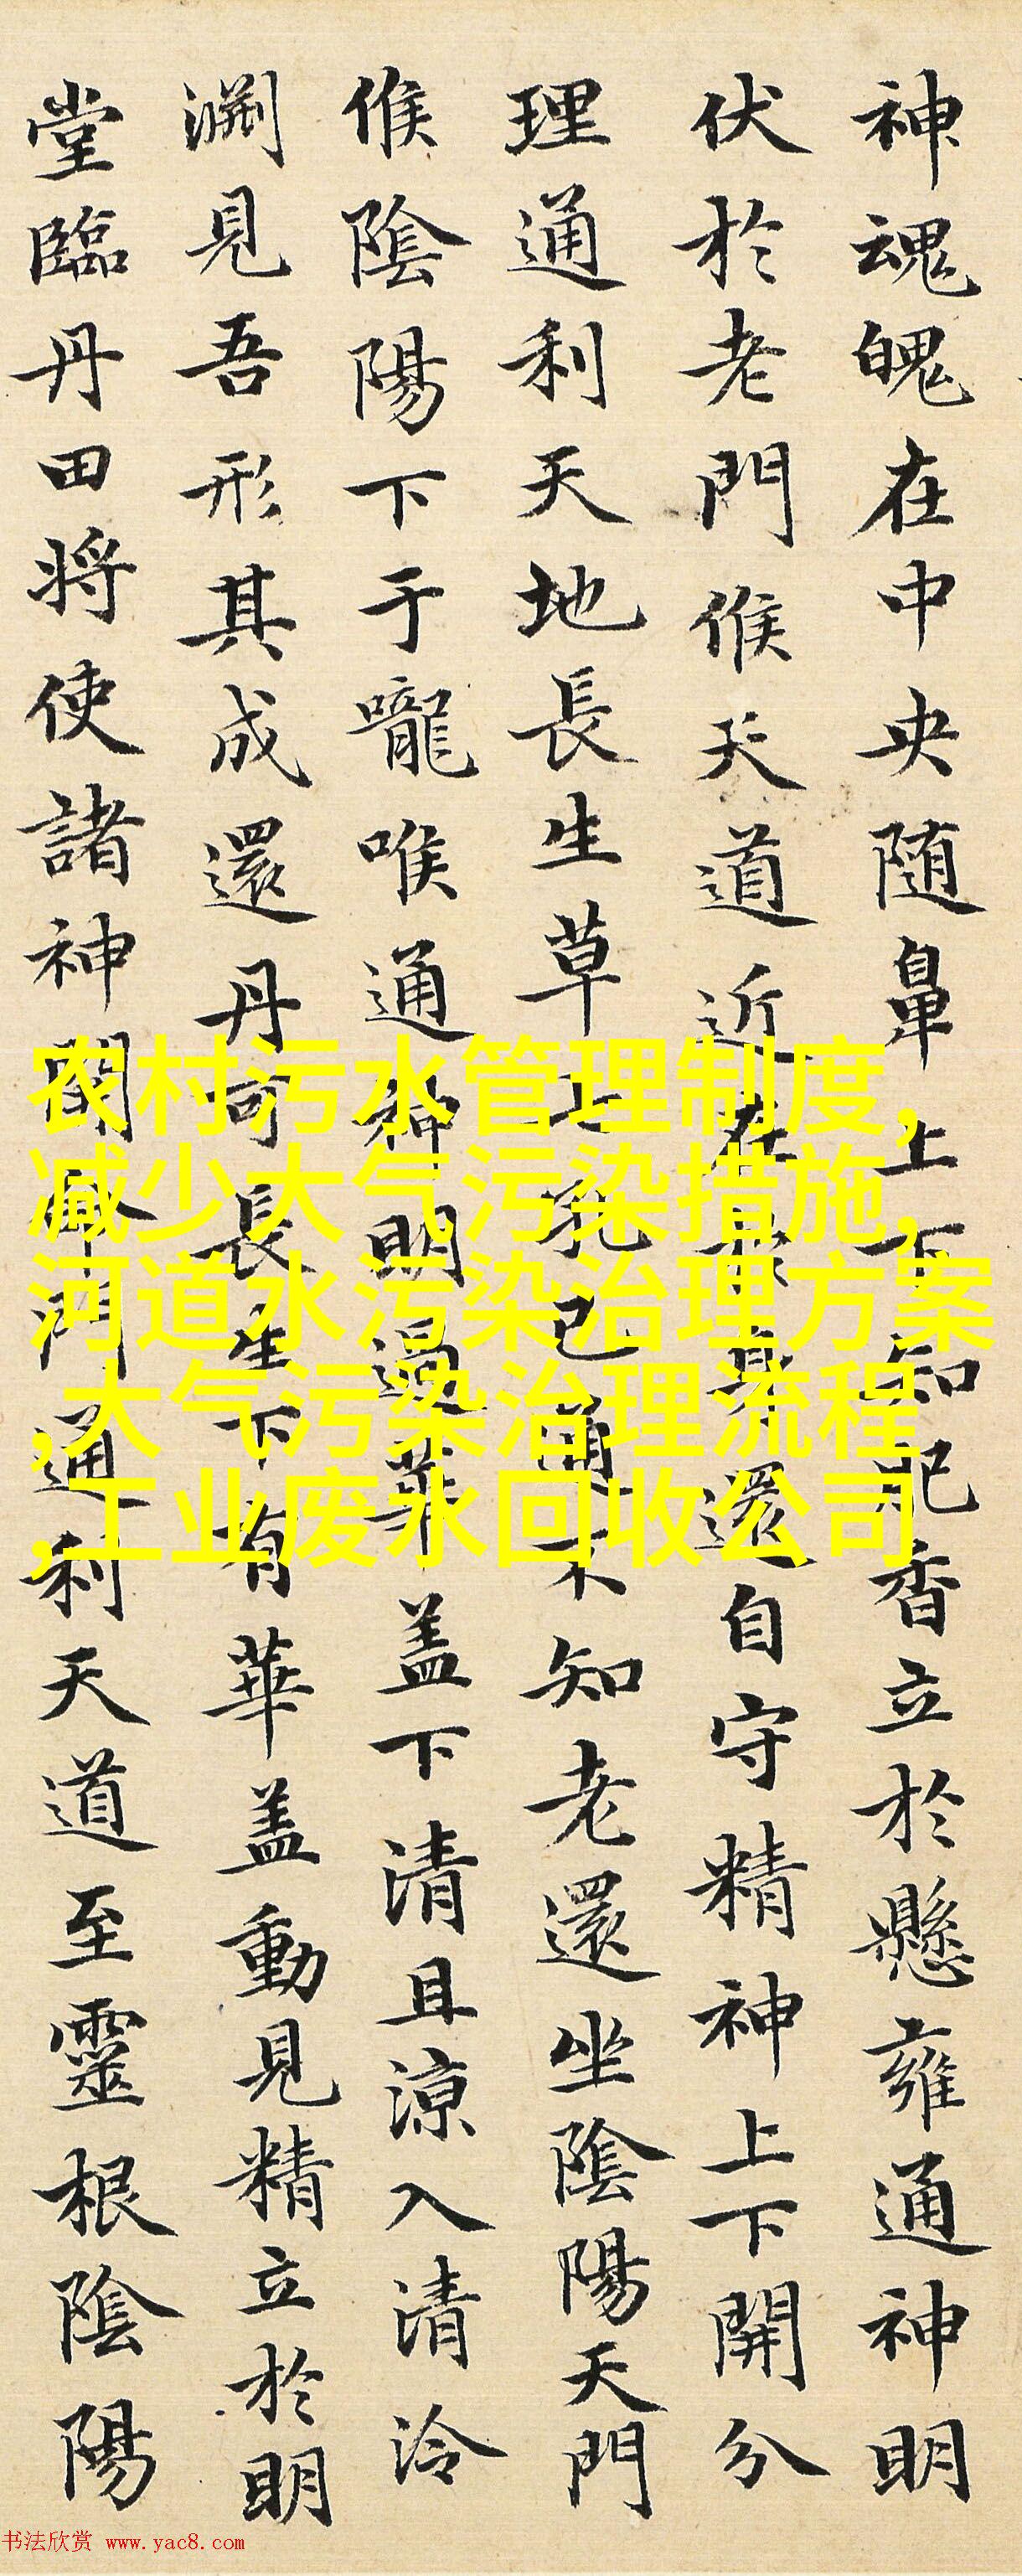 神魂魄在中央随鼻上下知肥香立於懸雍通神明
伏於老門候天道近在於身還自守精神上下開分
理通利天地長生草七孔已通不知老還坐陰陽天門
候陰陽下于嚨喉通神明過華盖下清且涼入清泠
淵見吾形其成還丹可長生下有華盖動見精立於明
堂臨丹田将使諸神開命門通利天道至靈根陰陽
农村污水管理制度,
减少大气污染措施,
河道水污染治理方案
,大气污染治理流程
,工业废水回收公司
书法欣赏 www.yac8.com